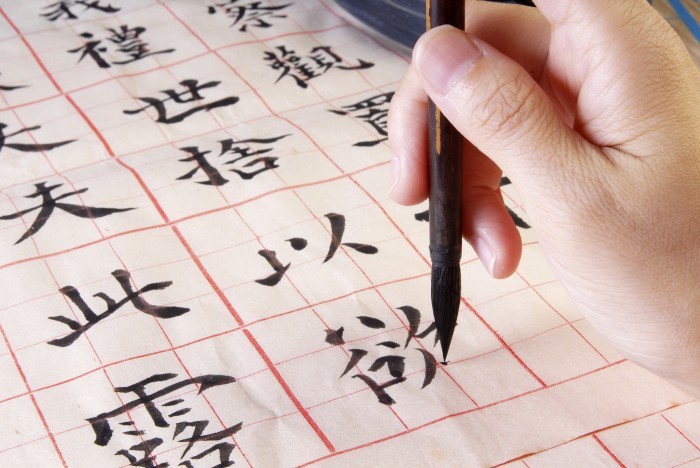 察觀
我禮世捨以
夫此露